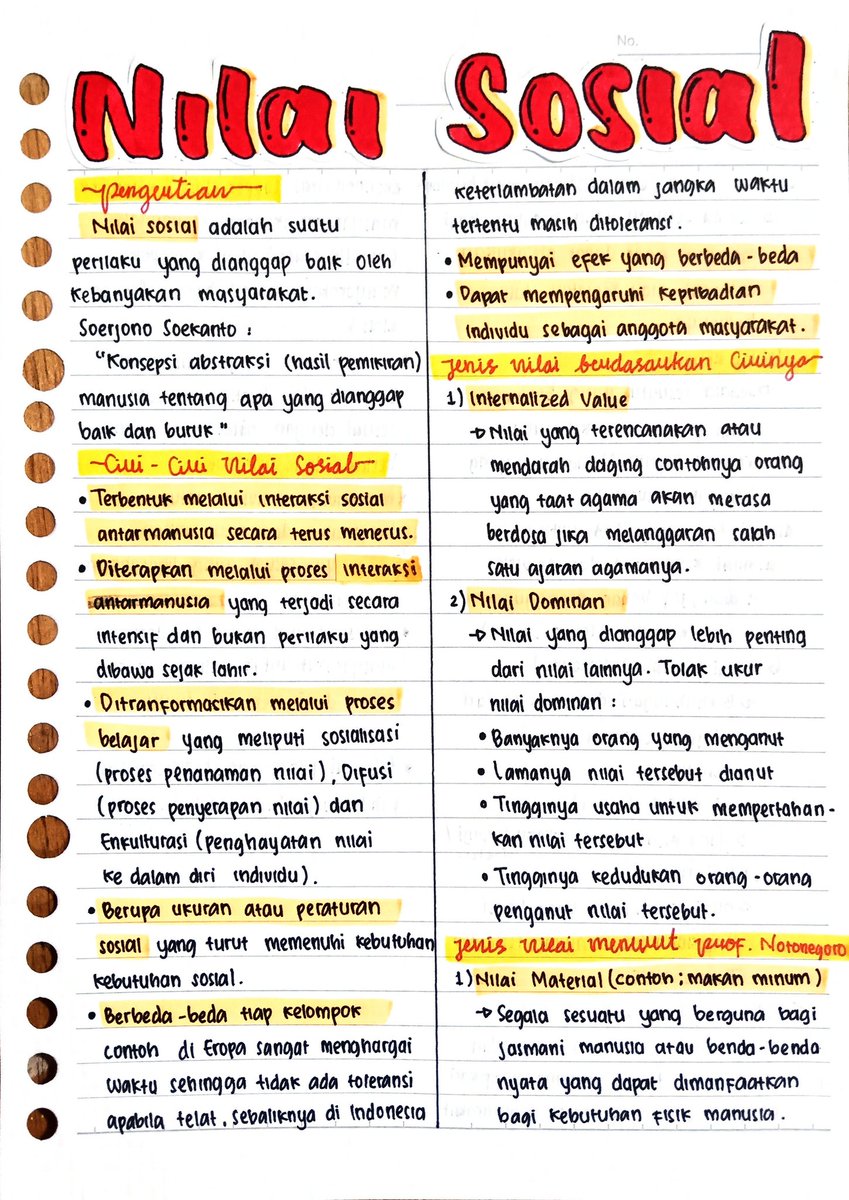 No.
Nilai Sosial
pengertian
Nilai sosial adalah suatu
perilaku yang dianggap baik oleh
kebanyakan masyarakat.
Soerjono Soekanto :
"Konsepsi abstraksi (hasil pemikiran)
manusia tentang apa yang dianggap
baik dan buruk"
Ciri - Ciri Nilai Sosial
• Terbentuk melalui interaksi sosial
antarmanusia secara terus menerus.
• Diterapkan melalui proses interaksi
antarmanusia yang terjadi secara
intensif dan bukan perilaku yang
dibawa sejak lahir.
• Ditranformasikan melalui proses
belajar yang meliputi sosialisasi
(proses penanaman nilai), Difusi
(proses penyerapan nilai) dan
Enkulturasi (penghayatan nilai
ke dalam diri individu).
• Berupa ukuran atau peraturan
sosial yang turut memenuhi kebutuhan
kebutuhan sosial.
• Berbeda-beda tiap kelompok
contoh di Eropa sangat menghargai
waktu sehingga tidak ada toleransi
apabila telat, sebaliknya di Indonesia
keterlambatan dalam jangka waktu
tertentu masih ditoleransi.
• Mempunyai efek yang berbeda-beda
• Dapat mempengaruhi kepribadian
individu sebagai anggota masyarakat.
jenis nilai berdasarkan Cirinya
1) Internalized Value
→ Nilai yang terencanakan atau
mendarah daging contohnya orang
yang taat agama akan merasa
berdosa jika melanggaran salah
satu ajaran agamanya.
2) Nilai Dominan
→ Nilai yang dianggap lebih penting
dari nilai lainnya. Tolak ukur
nilai dominan :
• Banyaknya orang yang menganut
• lamanya nilai tersebut dianut
• Tingginya usaha untuk mempertahan-
kan nilai tersebut
• Tingginya kedudukan orang-orang
penganut nilai tersebut.
jenis nilai menurut prof. Notonegoro
1) Nilai Material (contoh ; makan minum)
→ Segala sesuatu yang berguna bagi
jasmani manusia atau benda-benda
nyata yang dapat dimanfaatkan
bagi kebutuhan fisik manusia.